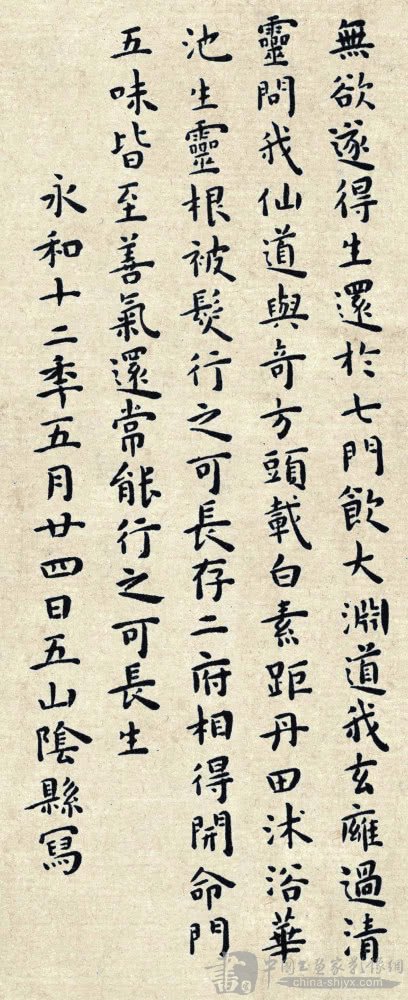 無欲遂得生還於七門飲大淵道我玄廱過清
靈問我仙道與奇方頭載白素距丹田沐浴華
池生靈根被髮行之可長存二府相得開命門
五味皆至善氣還常能行之可長生
永和十二年五月廿四日五山陰縣寫
書
中國書画家影像網
china-shjyx.com